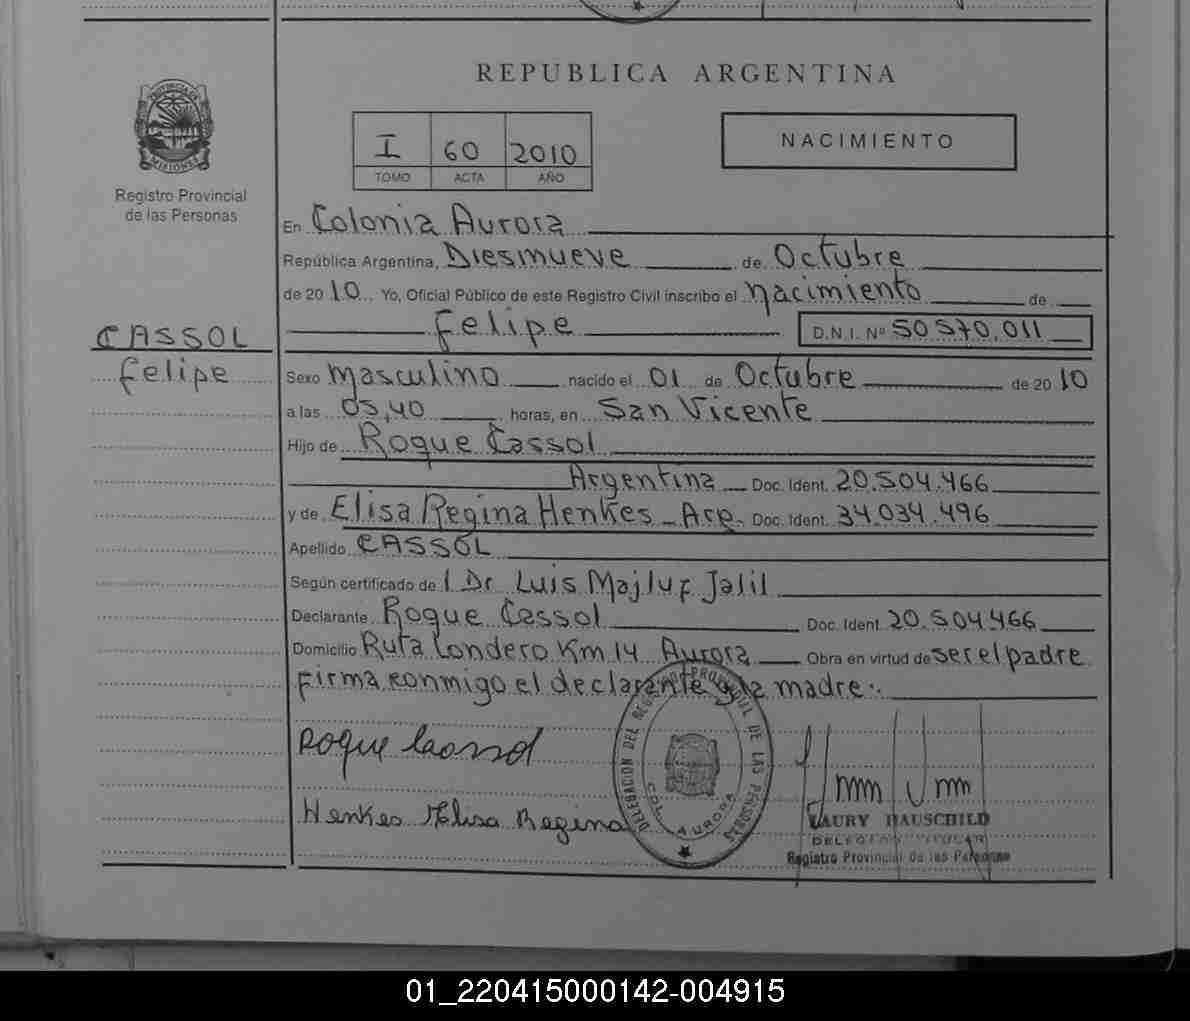 REPUBLICA ARGENTINA
PROVINCIA DE
MISIONES
Registro Provincial
de las Personas
I 60 2010
TOMO ACTA AÑO
NACIMIENTO
En Colonia Aurora
República Argentina, Diesinueve de Octubre
de 2010 Yo, Oficial Público de este Registro Civil inscribo el nacimiento de
Felipe D.N.I. Nº 50 570.011
CASSOL
Felipe
Sexo masculino nacido el 01 de Octubre de 2010
a las 05,40 horas, en San Vicente
Hijo de Roque Cassol
Argentina Doc. Ident. 20.504.466
y de Elisa Regina Henkes - Arg. Doc. Ident. 34.034.496
Apellido CASSOL
Según certificado de l Dr Luis Majluf Jalil
Declarante Roque Cassol Doc. Ident. 20.504466
Domicilio Ruta Londero Km 14 Aurora Obra en virtud de ser el padre
Firma conmigo el declarante y la madre.
Roque Cassol
Henkes Elisa Regina
DELEGACION DEL REGISTRO PROVINCIAL DE LAS PERSONAS
COL. AURORA
LAURY HAUSCHILD
DELEGADO TITULAR
Registro Provincial de las Personas
01_220415000142-004915